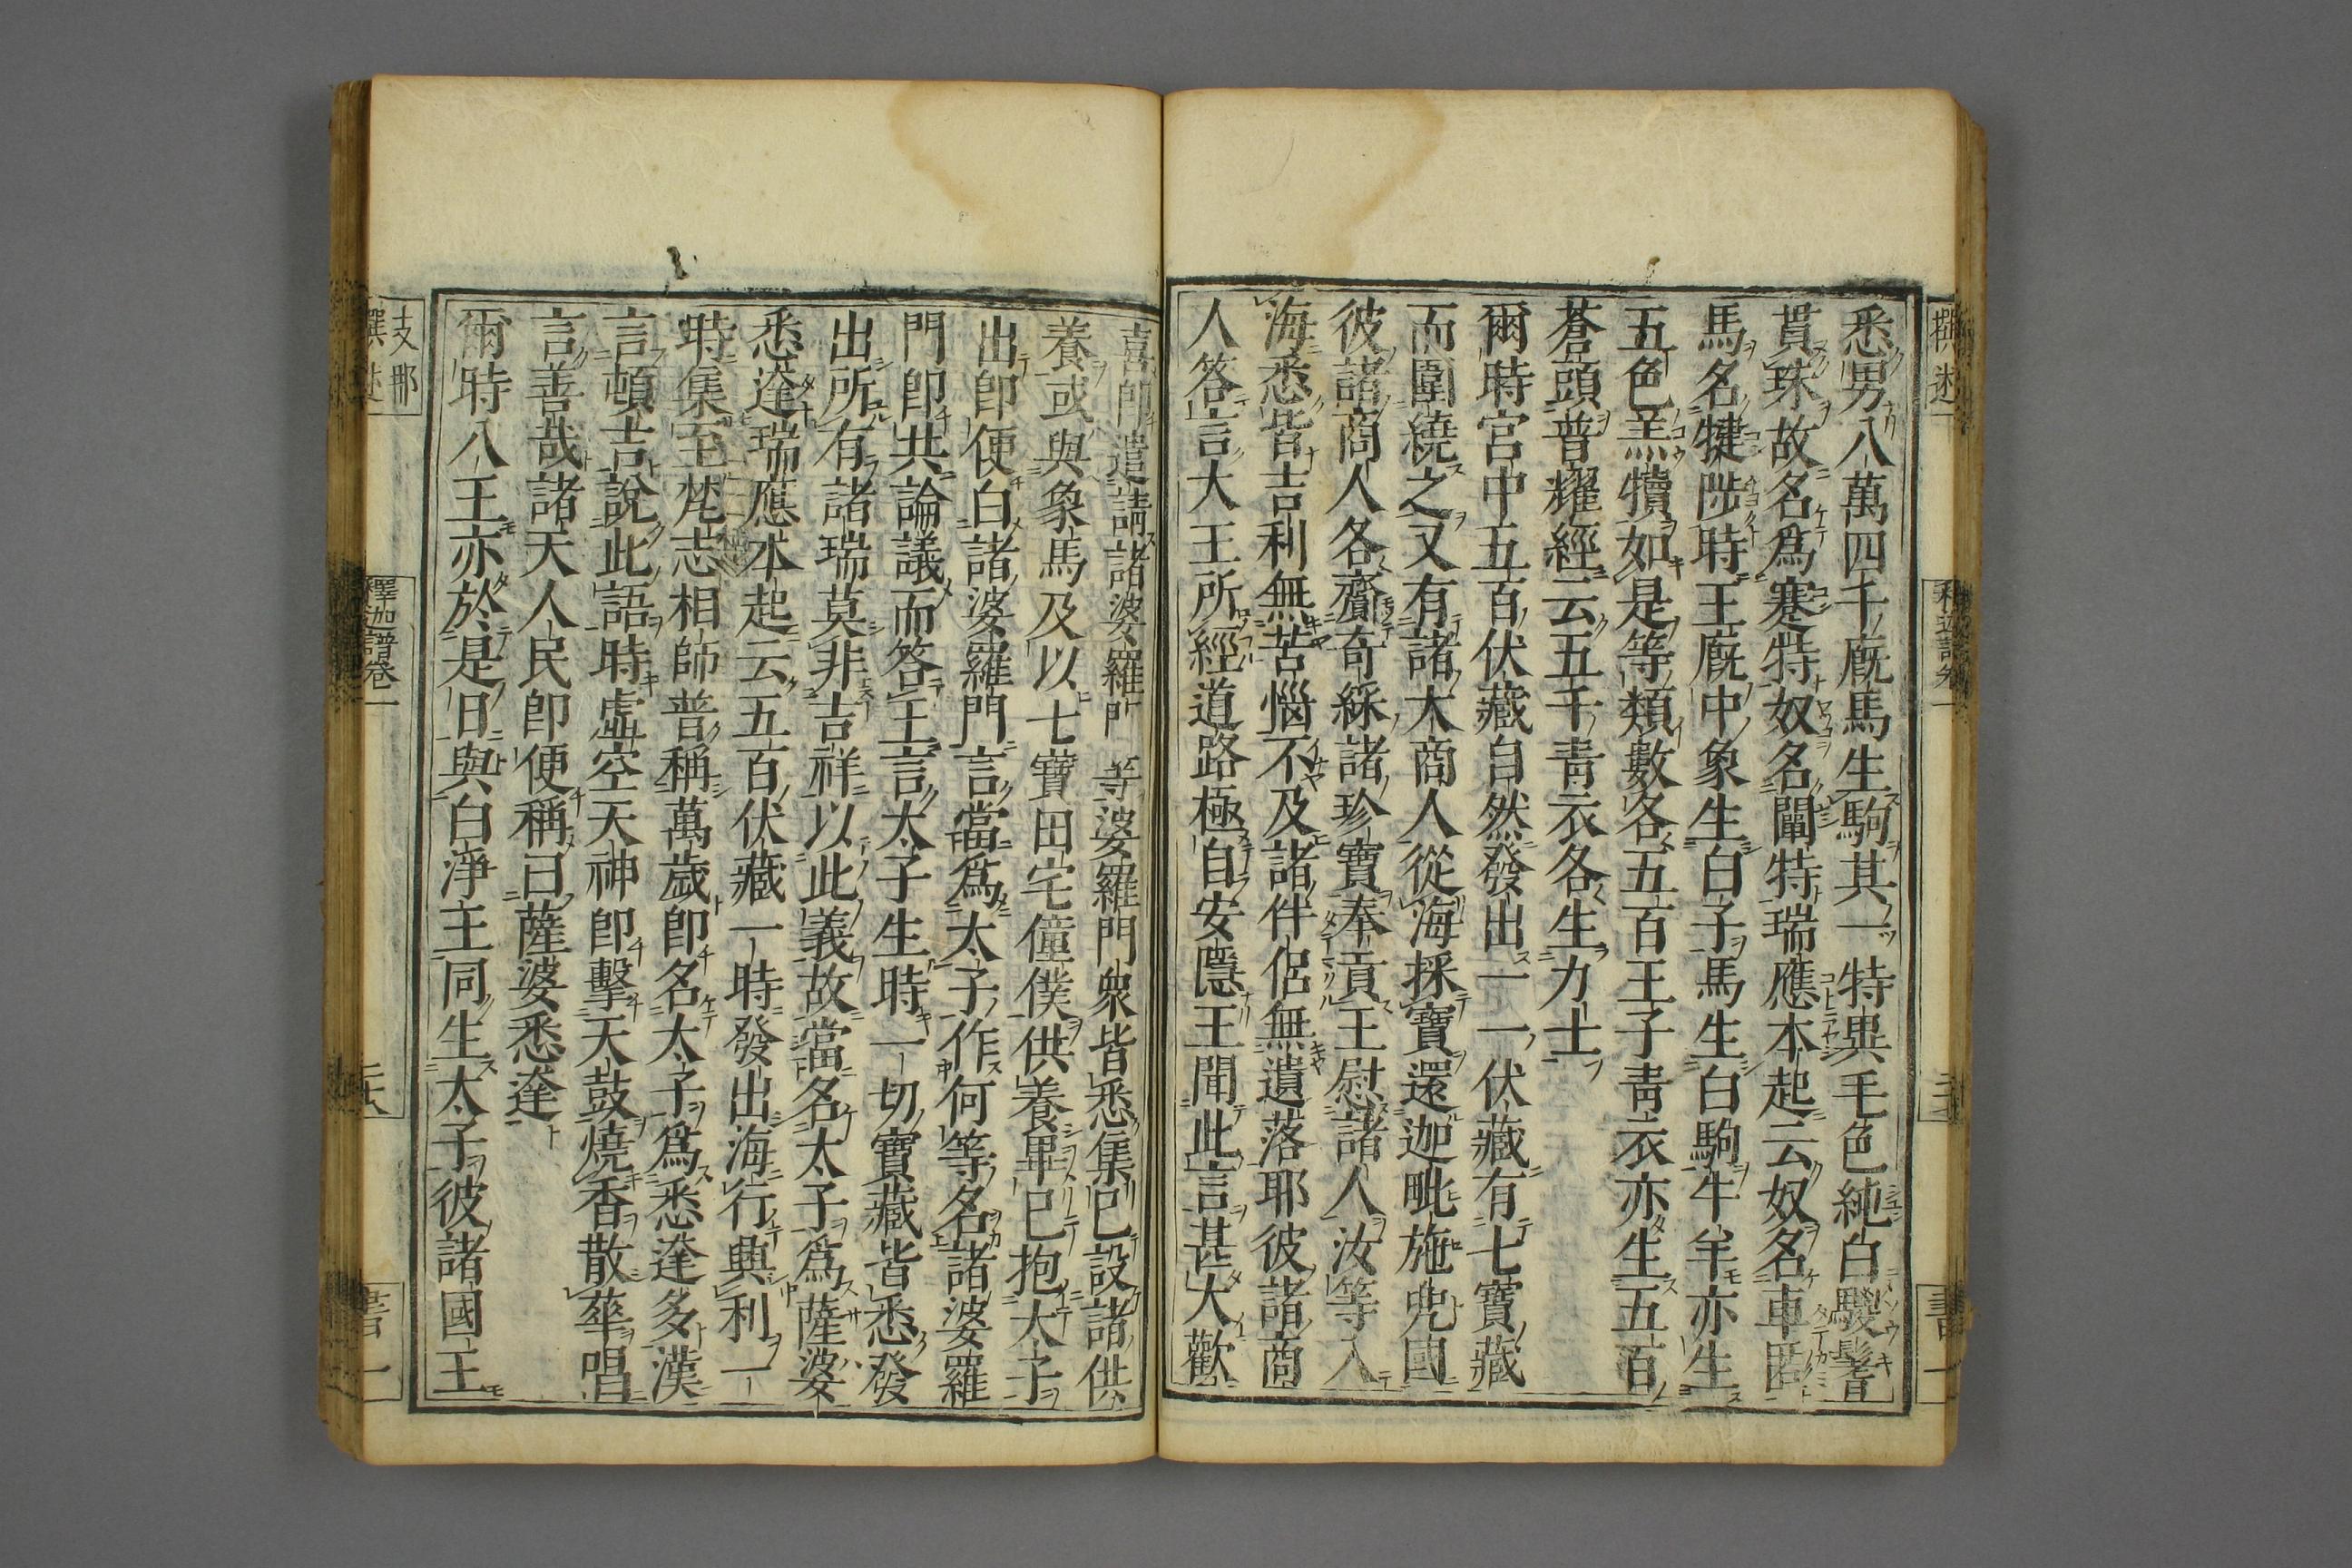 悉男八萬四千廐馬生駒其一特異毛色純白騣鬐
貫珠故名爲蹇特奴名闡特瑞應本起云奴名車匿
馬名犍陟時王廐中象生白子馬生白駒牛羊亦生
五色羔犢如是等類數各五百王子青衣亦生五百
蒼頭普耀經云五千青衣各生力士
爾時宮中五百伏藏自然發出一一伏藏有七寶藏
而圍繞之又有諸大商人從海採寶還迦毗施兜國
彼諸商人各齎奇綵諸珍寶奉貢王慰諸人汝等入
海悉皆吉利無苦惱不及諸伴侶無遺落耶彼諸商
人答言大王所經道路極自安隱王聞此言甚大歡
喜即遣請諸婆羅門等婆羅門衆皆悉集巳設諸供
養或與象馬及以七寶田宅僮僕供養畢巳抱太子
出即便白諸婆羅門言當爲太子作何等名諸婆羅
門即共論議而答王言太子生時一切寶藏皆悉發
出所有諸瑞莫非吉祥以此義故當名太子爲薩婆
悉達瑞應本起云五百伏藏一時發出海行興利一
時集至梵志相師普稱萬歲即名太子爲悉達多漢
言頓吉說此語時虛空天神即擊天鼓燒香散華唱
言善哉諸天人民即便稱曰薩婆悉達
爾時八王亦於是日與白淨王同生太子彼諸國王
支那
撰述
釋迦譜卷一
書一